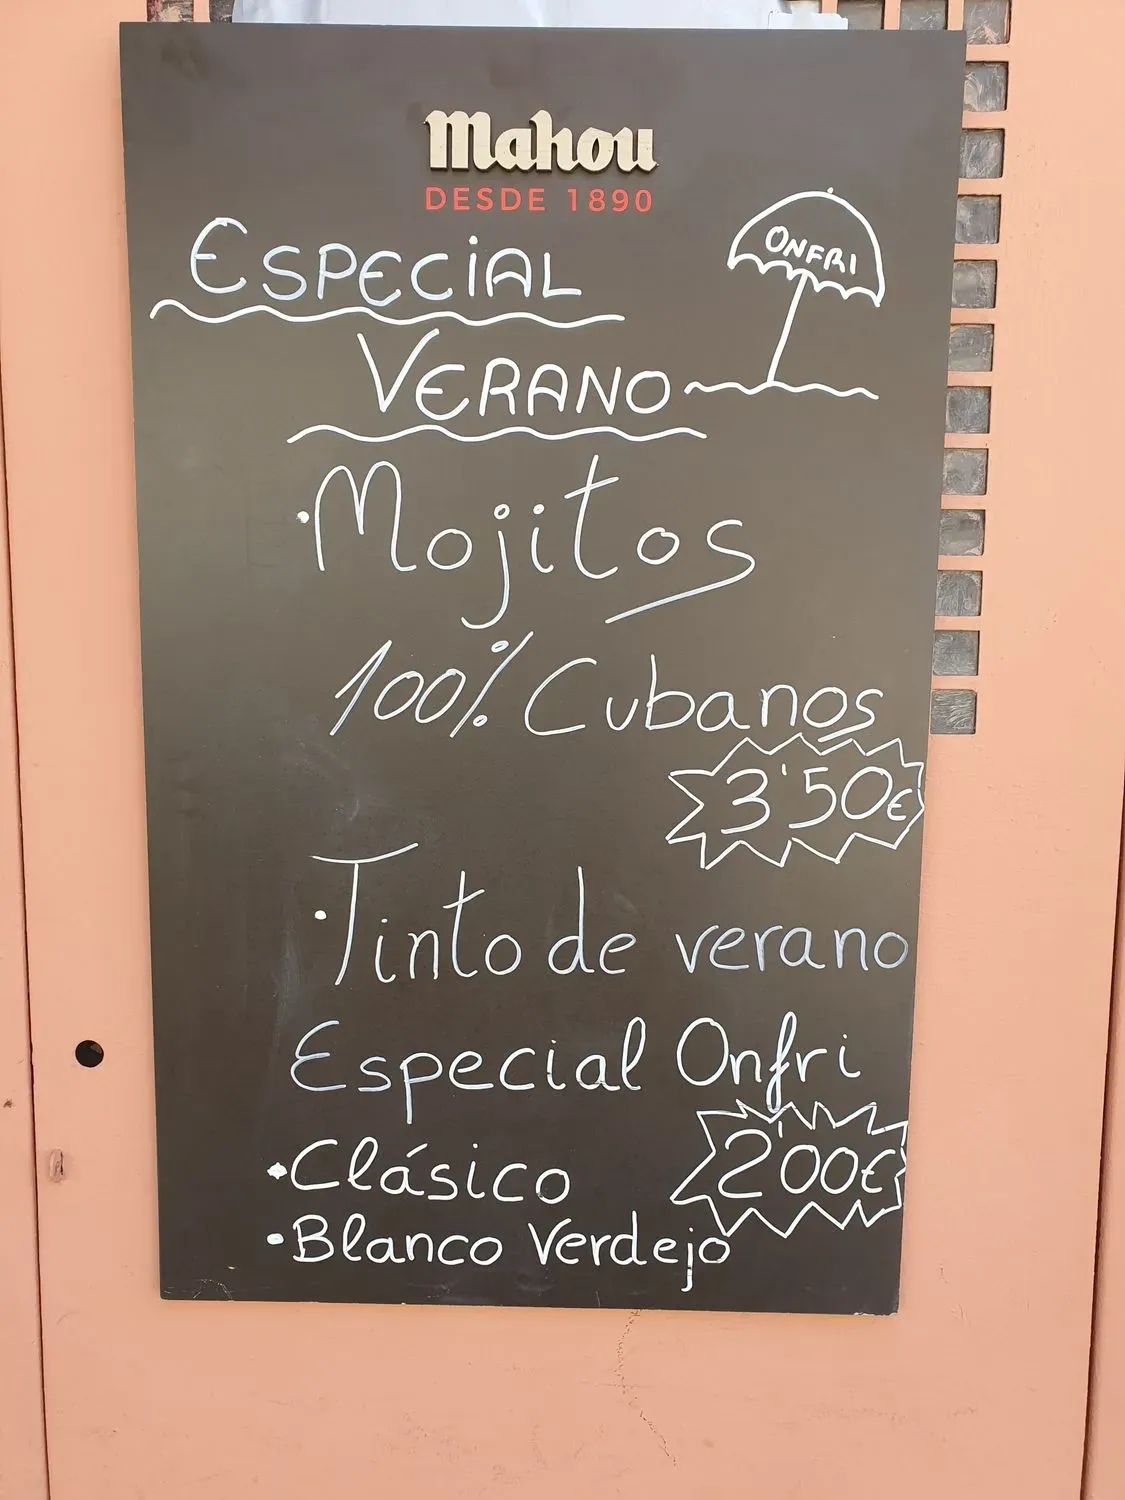 Mahou
DESDE 1890
ESPECIAL
ONFRI
VERANO
·Mojitos
100% Cubanos
3'50€
·Tinto de verano
Especial Onfri
2'00€
·Clásico
·Blanco Verdejo